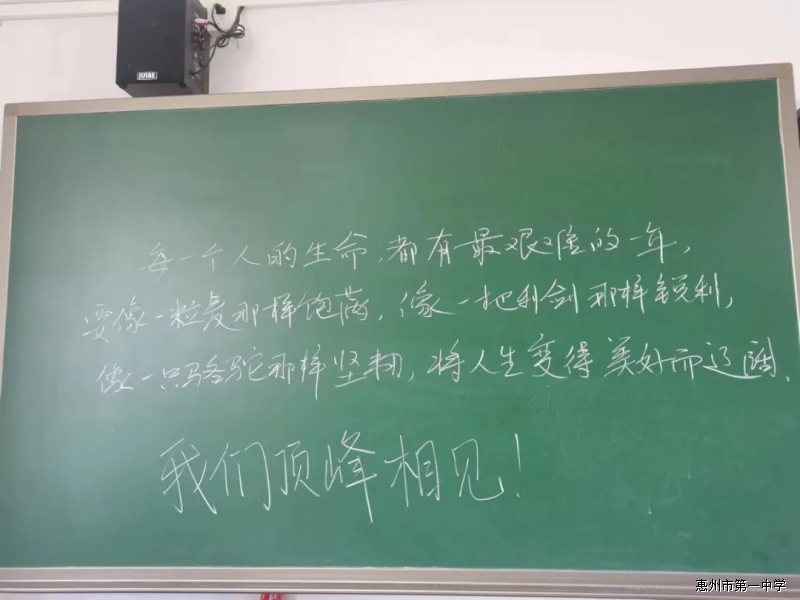 JUSBE
每一个人的生命,都有最艰难的一年,
要像一粒麦那样饱满,像一把利剑那样锐利,
像一只骆驼那样坚韧,将人生变得美好而辽阔.
我们顶峰相见!
惠州市第一中学